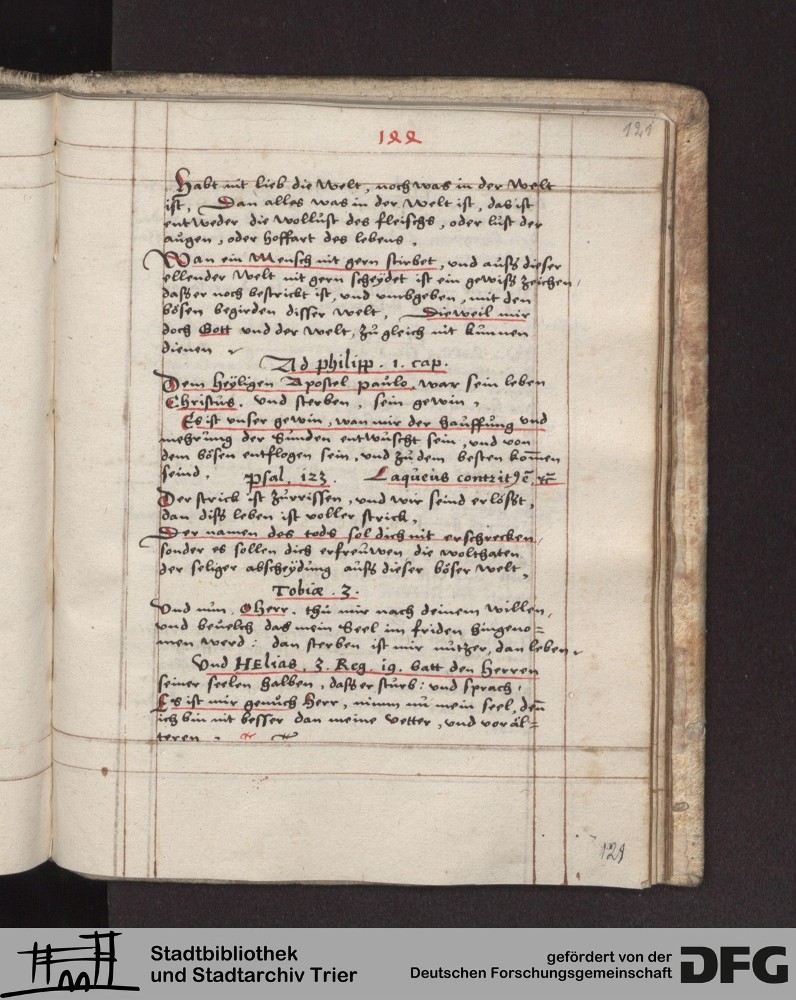 122
121
Habt nit lieb die Welt, noch was in der Welt
ist, Dan alles was in der Welt ist, das ist
entweder die wollust des fleischs, oder lust der
augen, oder hoffart des lebens.
Wan ein Mensch nit gern stirbet, und aufs dieser
ellender Welt nit gern scheÿdet ist ein gewiss zeichen,
dass er noch bestrickt ist, und umbgeben, mit den
bösen begirden disser welt, Dieweil mir
doch Gott und der Welt, zu gleich nit kunnen
dienen
Ad philipp. 1. cap.
Dem heÿligen Apostel paulo, war sein leben
Christus, und sterben, sein gewin,
Es ist unser gewin, wan mir der hauffung und
mehrung der Sunden entwuscht sein, und von
dem bösen entflogen sein, und zu dem besten kom̄en
seind. Psal. 123. Laqueus
Der strick ist zurrissen, und wir seind erlösst,
dan diss leben ist voller strick,
Der namen des tods sol dich nit erschrecken,
sonder es sollen dich erfreuwen die wolthaten
der seliger abscheÿdung aufs dieser böser welt,
Tobiæ. 3.
Und nun, O herr, thu mir nach deinem willen,
und beuelch das mein Seel im friden hingeno=
men werd: dan sterben ist mir nutzer, dan leben
Und HElias, 3. Reg. 19. batt den Herren
seiner seelen halben, dass er sturb: und sprach,
Es ist mir genuch Herr, nimm nu mein seel, den̄
ich bin nit besser dan meine vetter, und voräl=
teren.
121
Stadtbibliothek
und Stadtarchiv Trier
gefördert von der
Deutschen Forschungsgemeinschaft
DFG